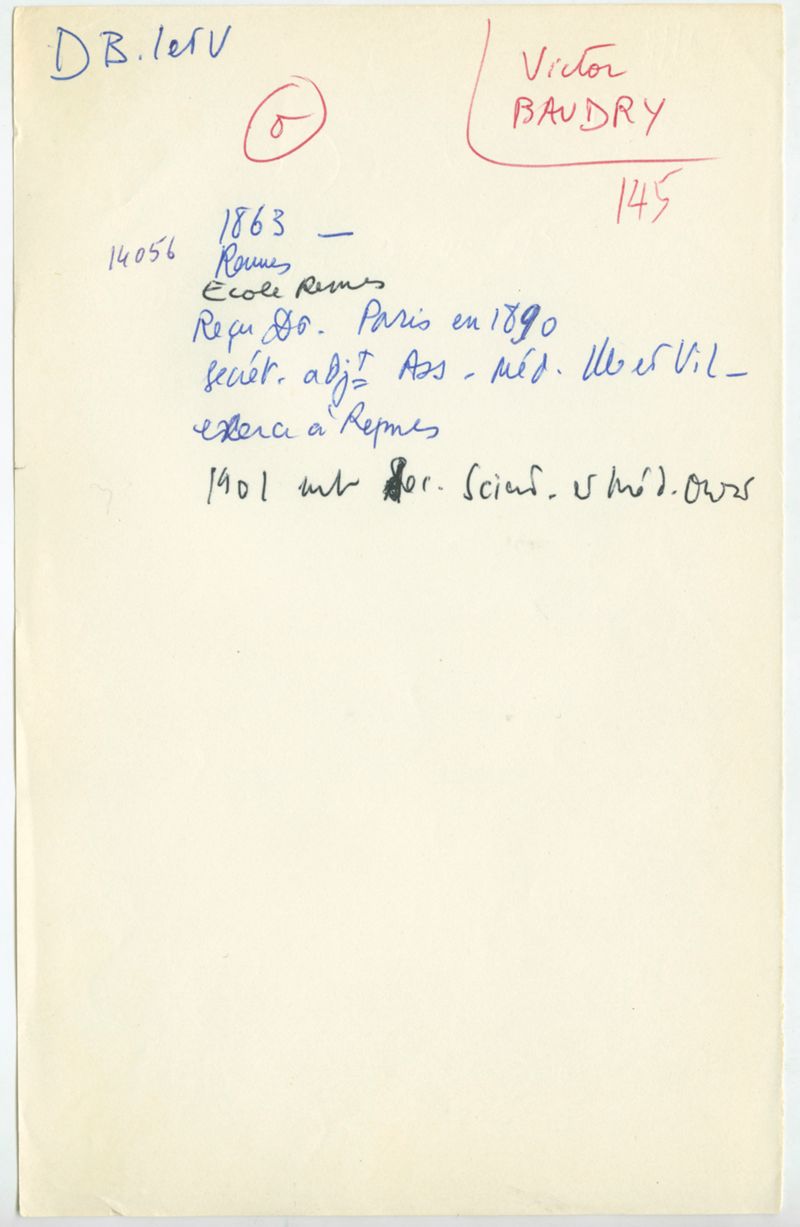 D B. I et V
Victor
BAUDRY
145
1863 —
14056
Rennes
Ecole Rennes
Reçu Dr. Paris en 1890
secrét. adjt Ass. méd. Ille et Vil—
exerce à Rennes
1901 mb Soc. Scient. et Méd. Ouest